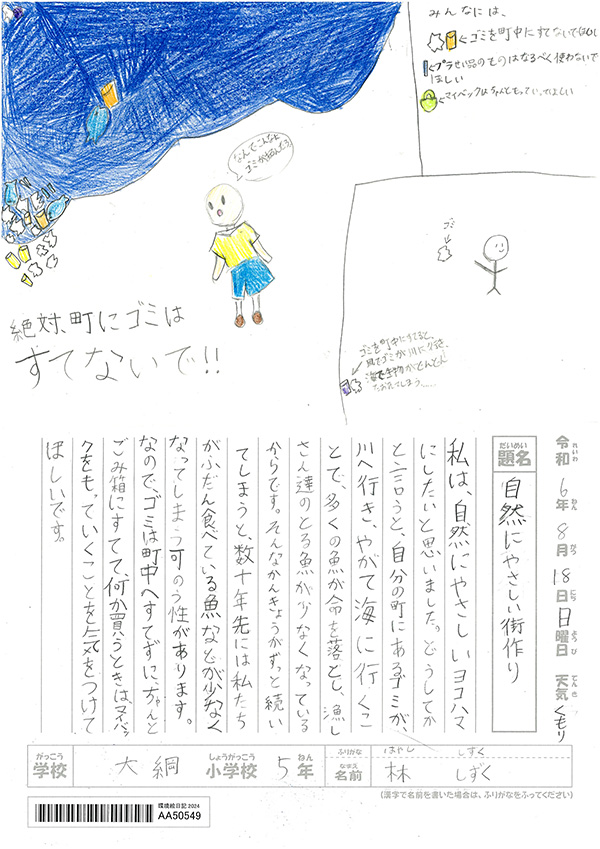 みんなには、
←ゴミを町中にすてないでほしい
←プラせい品のものはなるべく使わないで
ほしい
←マイバックはちゃんともっていってほしい
なんでこんなに
ゴミが
ゴミ
絶対、町にゴミは
すてないで!!
ゴミを町中にすてると、
風でゴミが川に入り
海で生物がどんどん
しまう……
令和6年8月18日日曜日 天気くもり
れいわ ねん がつ にち ようび てんき
だいめい
題名 自然にやさしい街作り
私は、自然にやさしいヨコハマ
にしたいと思いました。どうしてか
と言うと、自分の町にあるゴミが
川へ行き、やがて海に行くこ
とで、多くの魚が命を落とし、漁し
さん達のとる魚が少なくなっている
からです。そんなかんきょうがずっと続い
てしまうと、数十年先には私たち
がふだん食べている魚などが少なく
なってしまう可のう性があります。
なのでゴミは町中へすてずに、ちゃんと
ごみ箱にすてて、何か買うときはマイバッ
クをもっていくことを気をつけて
ほしいです。
がっこう しょうがっこう ねん
学校 大綱 小学校 5年
ふりがな はやし しずく
なまえ
名前 林 しずく
(漢字で名前を書いた場合は、ふりがなをふってください)
環境絵日記 2024
AA50549